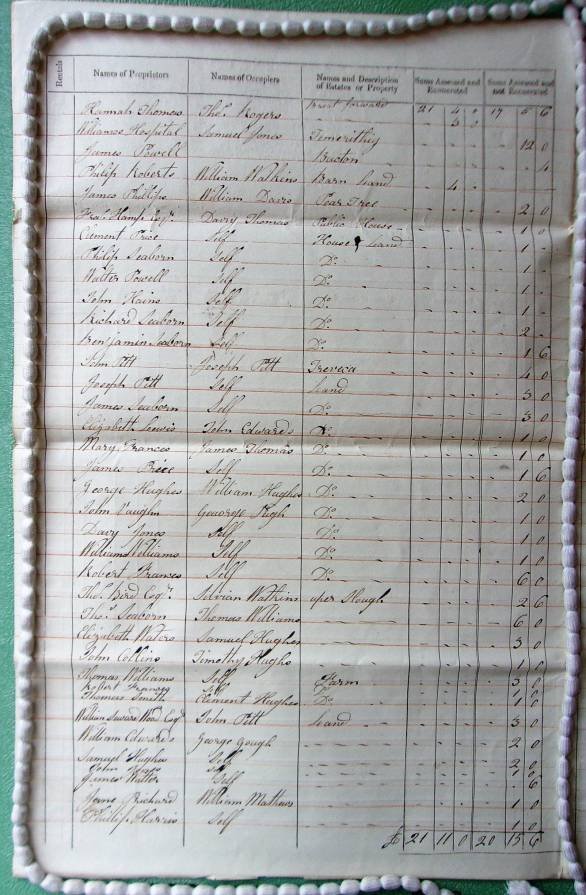 Rentals Names of Proprietors Names of Occupiers Names and Description of Estates or Property Sums Assessed and Exonerated Sums Assessed and not Exonerated
Brot forward 21 4 0 17 5 6
Hannah Thomas Thos. Rogers - - 3 0
Williams Hospital Samuel Jones - 12 0
James Powell Bacton - 4
Philip Roberts William Watkins Barn Land 4
James Phillips William Davis Pear Tree 2 0
Hamp Esqr. Davy Thomas Public House 1 0
Clement Price Self House & Land 1 -
Philip Seaborn Self Do. 1 -
Walter Powell Self Do. 1 -
John Hains Self Do. 1 -
Richard Seaborn Self Do. 2 -
Benjamin Seaborn Self Do. 1 6
John Pitt Joseph Pitt Treveca 4 0
Joseph Pitt Self Land 3 0
James Seaborn Self Do. 3 0
Elizabeth Lewis John Edwards Do. 1 0
Mary Frances James Thomas Do. 1 0
James Price Self Do. 1 6
George Hughes William Hughes Do. 2 0
John Vaughn George Pugh Do. 1 0
Davy Jones Self Do. 1 0
William Williams Self Do. 1 0
Robert Frances Self Do. 6 0
Thos. Bird Esqr. Silvian Watkins uper Slough 2 6
Thos. Seaborn Thomas Williams 6 0
Elizabeth Waters Samuel Hughes 3 0
John Collins Timothy Hughs 1 0
Thomas Williams Self Farm 3 0
Robert Self Do. 1 0
Thomas Smith Clement Hughes Do. 1 0
William Seward Wood Esqr. John Pitt Land 3 0
William Edwards George Gough 2 0
Samuel Hughes Self 2 0
John Self 1 0
James Watter Self 6
Richard William Mathews 1 0
Philip Harris Self 1 0
£ 21 11 0 20 15 6